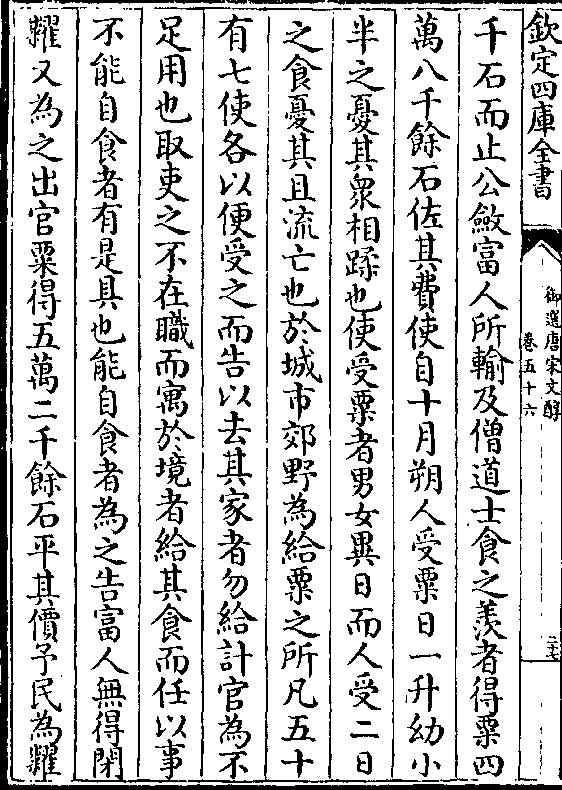 欽定四庫全書
御選唐宋文醇
卷五十六
二七
千石而止公斂富人所輸及僧道士食之羨者得粟四
萬八千餘石佐其費使自十月朔人受粟日一升幼小
半之憂其衆相蹂也使受粟者男女異日而人受二日
之食憂其且流亡也於城市郊野為給粟之所凡五十
有七使各以便受之而告以去其家者勿給計官為不
足用也取吏之不在職而寓於境者給其食而任以事
不能自食者有是具也能自食者為之告富人無得閉
糶又為之出官粟得五萬二千餘石平其價予民為糶